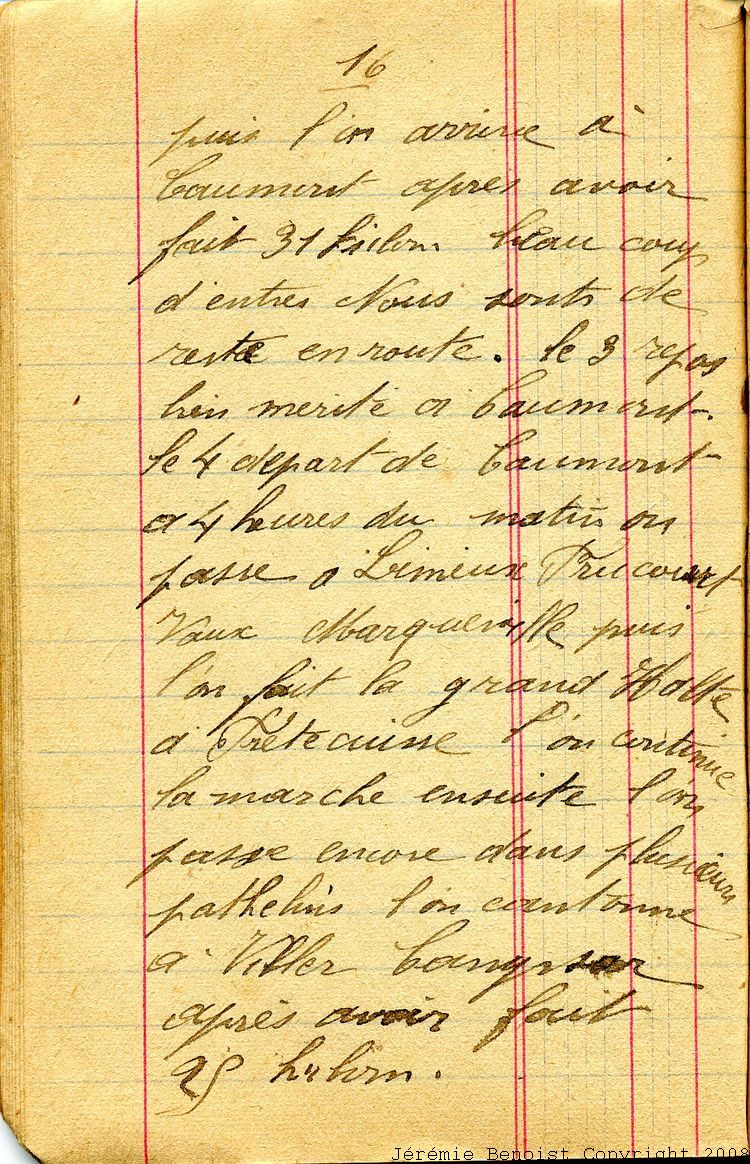 16
puis l'on arrive à
Caumont après avoir
fait 31 kilom beau coup
d'entres Nous sonts de
resté en route. le 3 repos
bien merité a Caumont.
le 4 départ de Caumont
a 4 heures du matin on
passe a Limeux Frucourt
Vaux Marquenville puis
l'on fait la grand Halte
a Fretecuisse l'on continue
la marche ensuite l'on
passe encore dans plusieurs
pathelins l'on cantonne
a Viller
après avoir fait
25 kilom.
Jérémie Benoist Copyright 2008